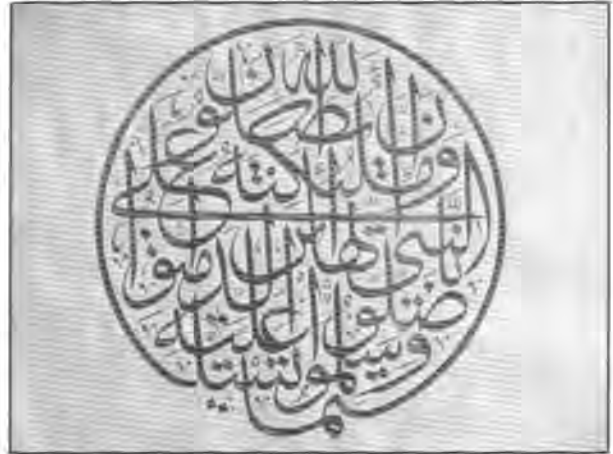 إن الله
وملئكته يصلون على
النبي يأيها الذين آمنوا
صلوا عليه
وسلموا تسليما